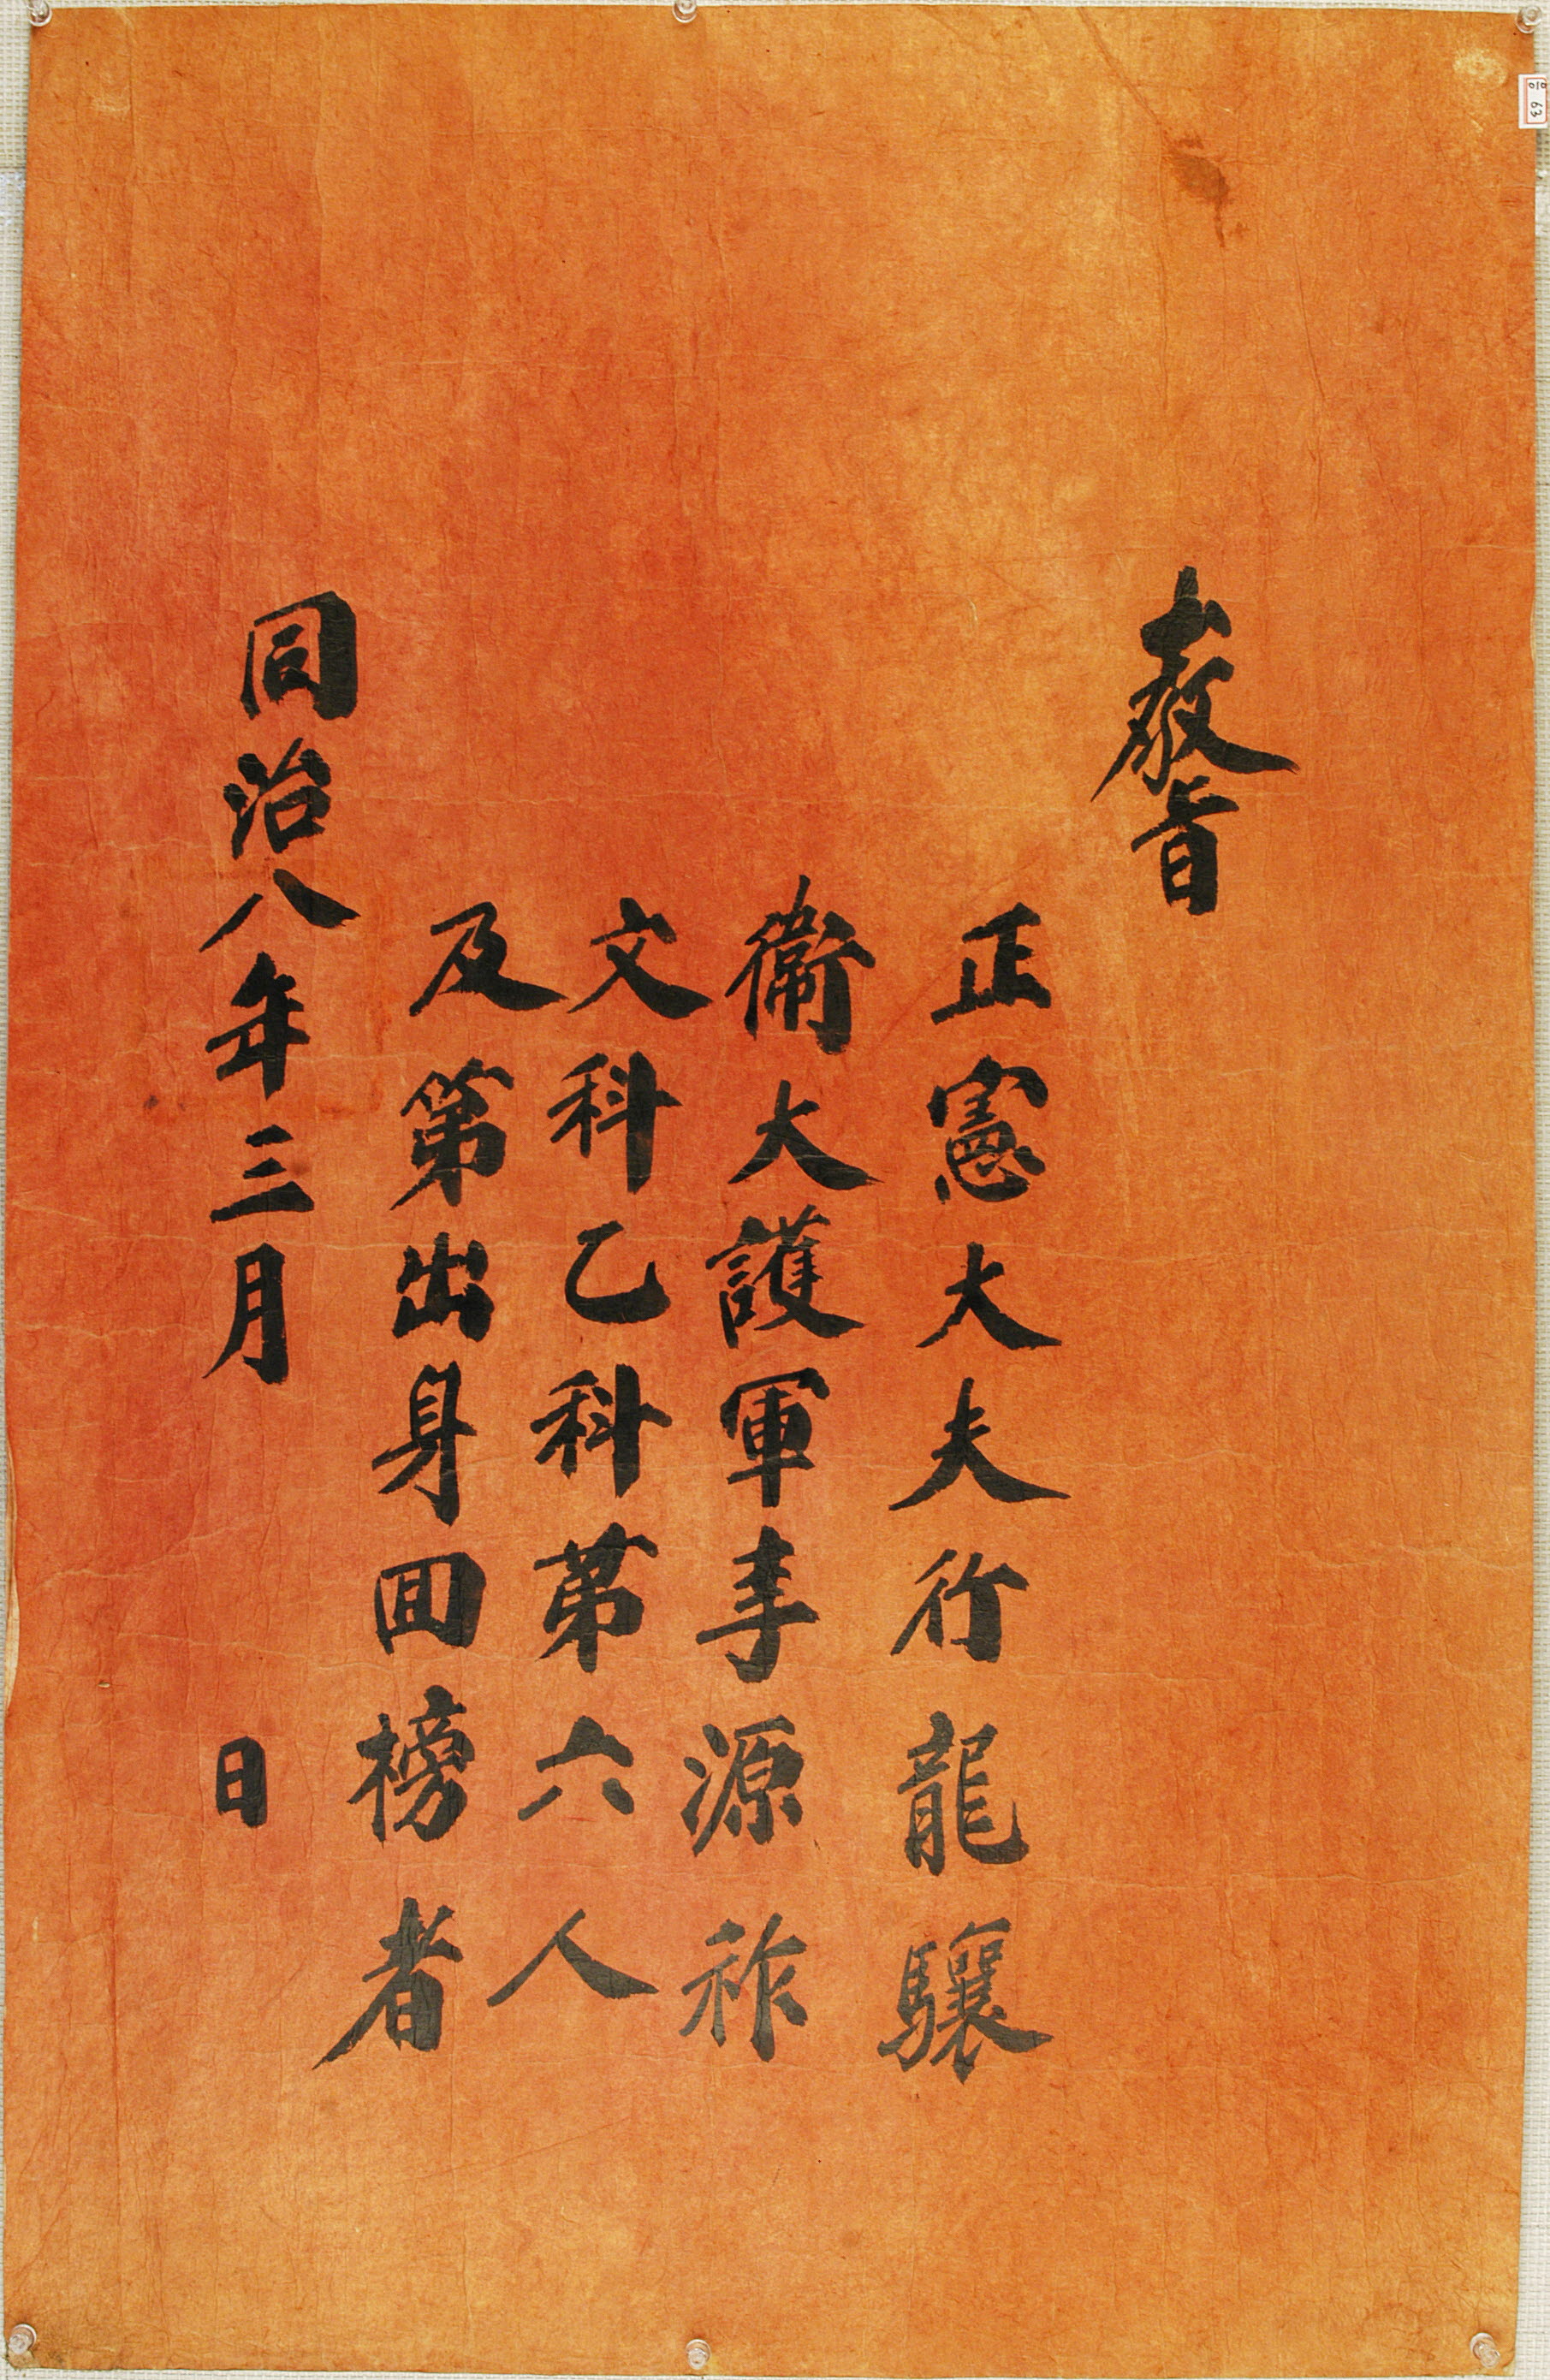 教旨
正憲大夫行龍驤
衛大護軍李源祚
文科乙科第六人
及第出身回榜者
同治八年三月　日
63